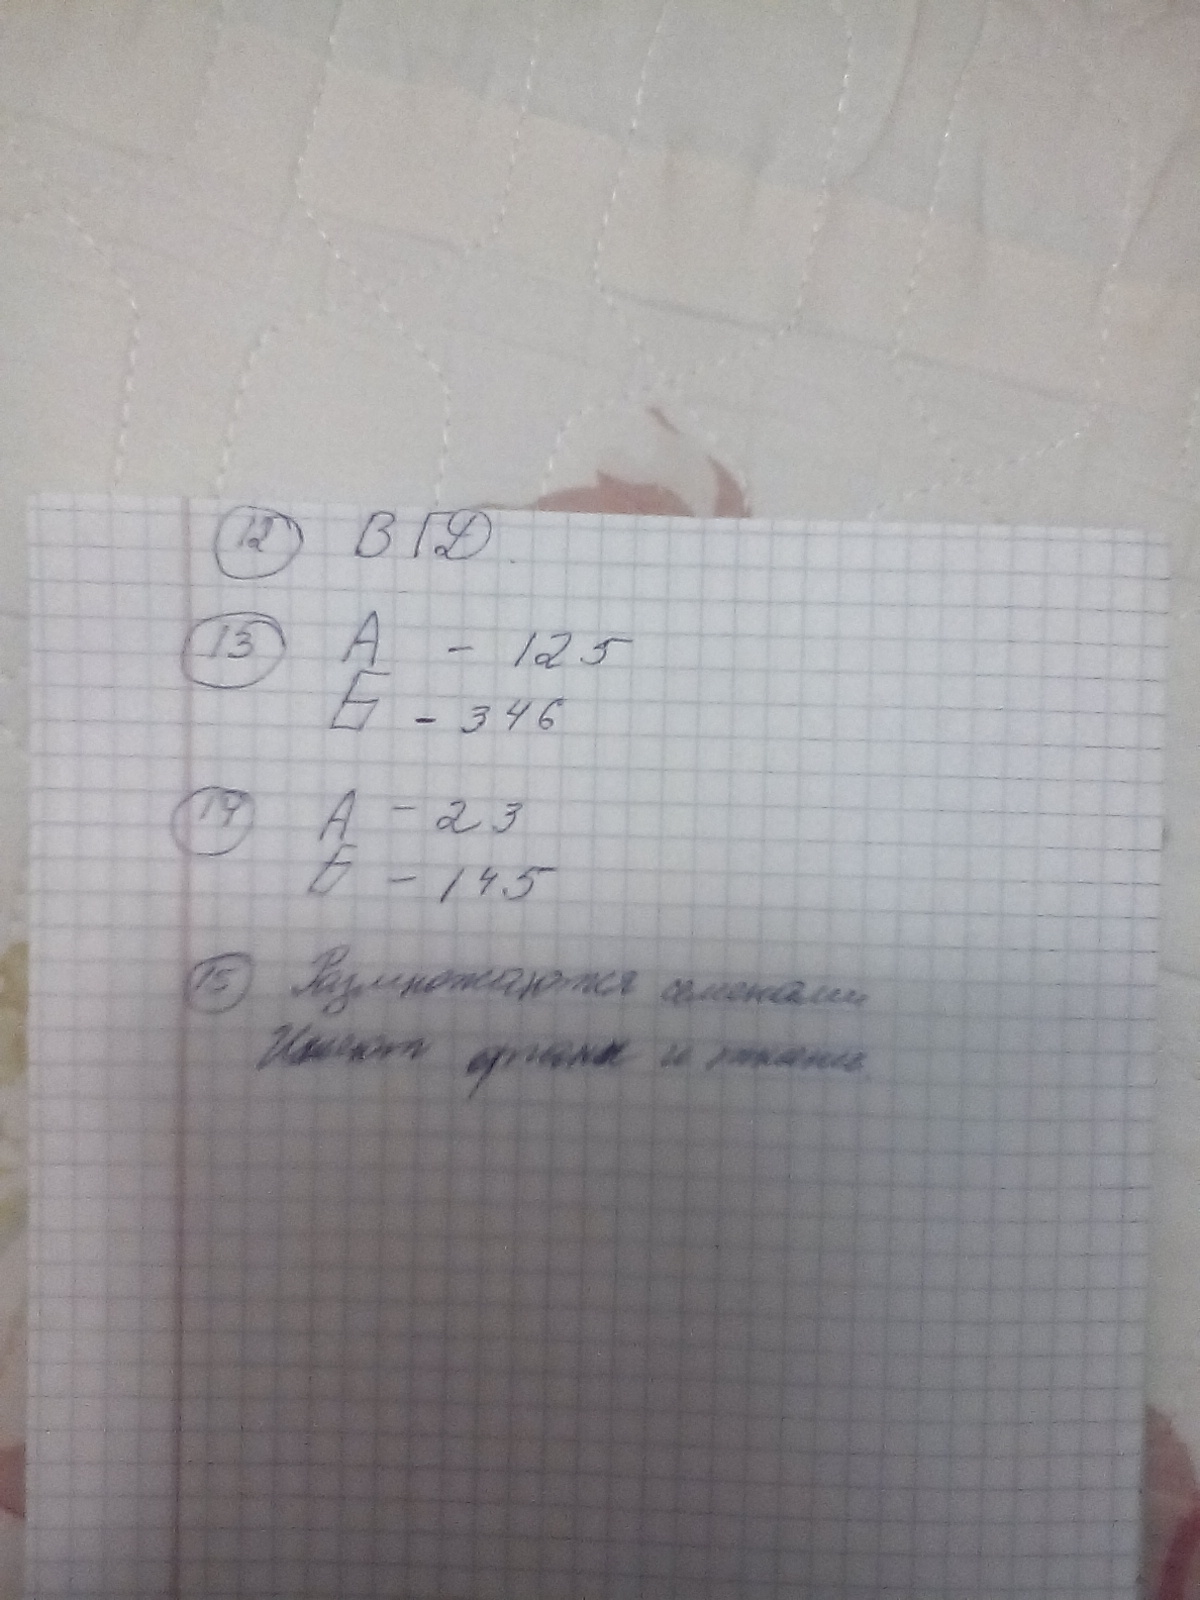 12 ВГД.
13 А - 125
Б - 346
14 А - 23
Б - 145
15 Размножаются семенами
Имеют органы и ткани.